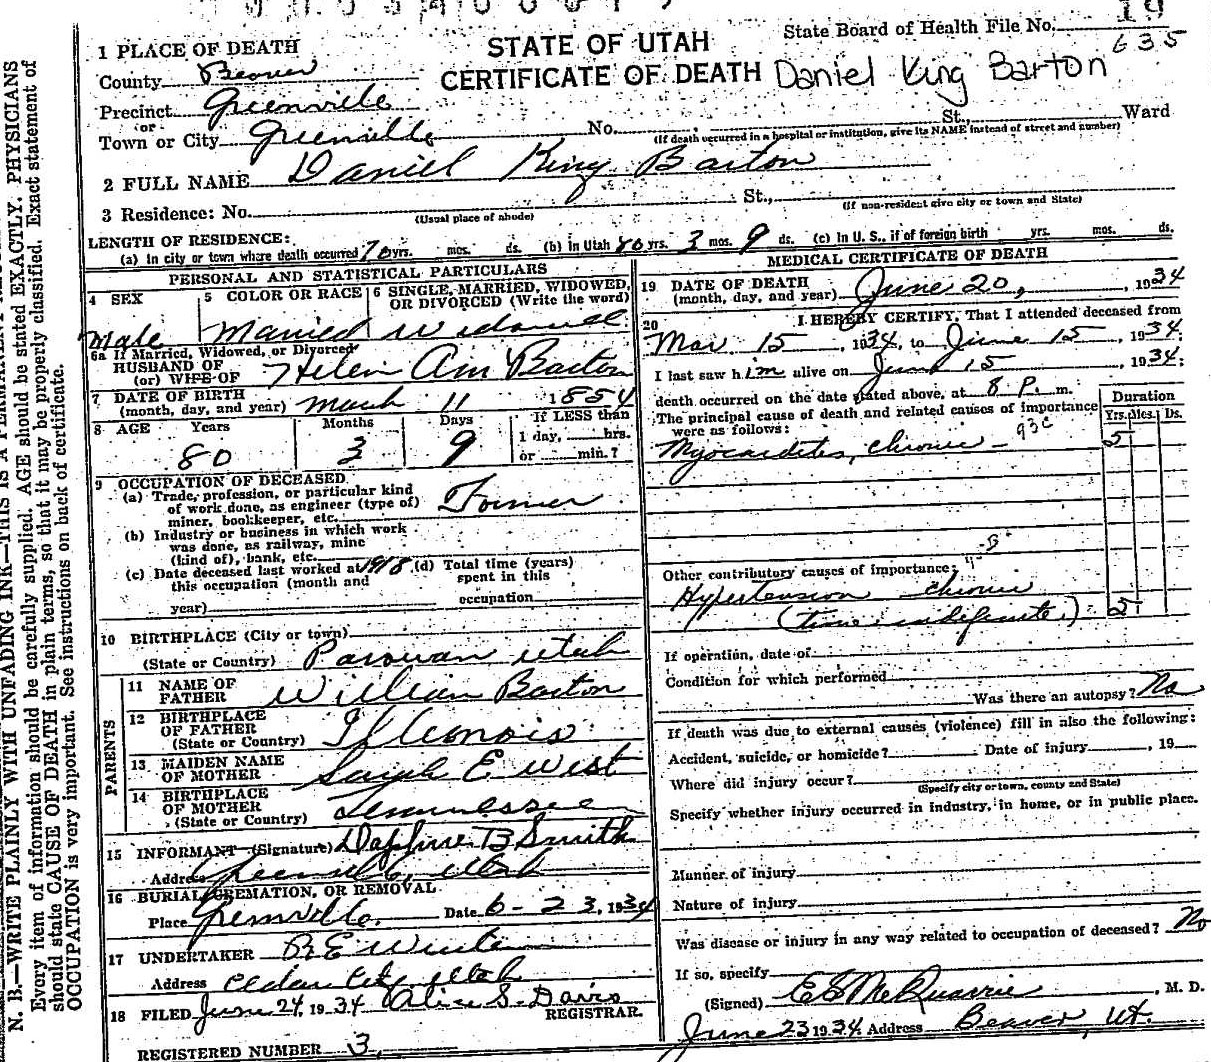 19
State Board of Health File No.
635
1 PLACE OF DEATH
STATE OF UTAH
County Beaver
CERTIFICATE OF DEATH Daniel King Barton
Precinct Greenville
or
Town or City Greenville No. St., Ward
(If death occurred in a hospital or institution, give its NAME instead of street and number)
2 FULL NAME Daniel King Barton
3 Residence: No. St.,
(Usual place of abode) (If non-resident give city or town and State)
LENGTH OF RESIDENCE:
(a) In city or town where death occurred 76 yrs. mos. ds. (b) in Utah 80 yrs. 3 mos. 9 ds. (c) In U. S., if of foreign birth yrs. mos. ds.
PERSONAL AND STATISTICAL PARTICULARS
4 SEX 5 COLOR OR RACE 6 SINGLE, MARRIED, WIDOWED,
OR DIVORCED (Write the word)
Male Married Widowed
6a If Married, Widowed, or Divorced
HUSBAND OF
(or) WIFE OF Helen Ann Barton
7 DATE OF BIRTH
(month, day, and year) March 11 1854
8 AGE Years Months Days If LESS than
1 day, hrs.
80 3 9 or min.?
9 OCCUPATION OF DECEASED
(a) Trade, profession, or particular kind
of work done, as engineer (type of)
miner, bookkeeper, etc. Farmer
(b) Industry or business in which work
was done, as railway, mine
(kind of), bank, etc.
(c) Date deceased last worked at 1918 (d) Total time (years)
this occupation (month and spent in this
year) occupation
10 BIRTHPLACE (City or town)
(State or Country) Parowan Utah
PARENTS
11 NAME OF
FATHER William Barton
12 BIRTHPLACE
OF FATHER
(State or Country) Illinois
13 MAIDEN NAME
OF MOTHER Sarah E West
14 BIRTHPLACE
OF MOTHER
(State or Country) Tennessee
15 INFORMANT (Signature) Daphne B Smith
Address Greenville, Utah
16 BURIAL, CREMATION, OR REMOVAL
Place Greenville. Date 6-23, 1934
17 UNDERTAKER
Address Cedar City Utah
18 FILED June 24, 1934 Alice S. Davis
REGISTRAR.
REGISTERED NUMBER 3,
MEDICAL CERTIFICATE OF DEATH
19 DATE OF DEATH
(month, day, and year) June 20, 1934
20 I HEREBY CERTIFY, That I attended deceased from
Mar 15, 1934, to June 15, 1934.
I last saw him alive on June 15, 1934;
death occurred on the date stated above, at 8 P. m.
The principal cause of death and related causes of importance
were as follows:
Duration
Yrs. Mos. Ds.
93c
Myocarditis, chronic - 5
Other contributory causes of importance:
Hypertension chronic
(time indefinite.) 5
If operation, date of
Condition for which performed
Was there an autopsy? No
If death was due to external causes (violence) fill in also the following:
Accident, suicide, or homicide? Date of injury , 19
Where did injury occur?
(Specify city or town, county and State)
Specify whether injury occurred in industry, in home, or in public place.
Manner of injury
Nature of injury
Was disease or injury in any way related to occupation of deceased? No
If so, specify
(Signed) E E McQuarrie, M. D.
June 23 1934 Address Beaver, Ut.
N. B.—WRITE PLAINLY WITH UNFADING INK—THIS IS A PERMANENT
Every item of information should be carefully supplied. AGE should be stated EXACTLY. PHYSICIANS
should state CAUSE OF DEATH in plain terms, so that it may be properly classified. Exact statement of
OCCUPATION is very important. See instructions on back of certificate.